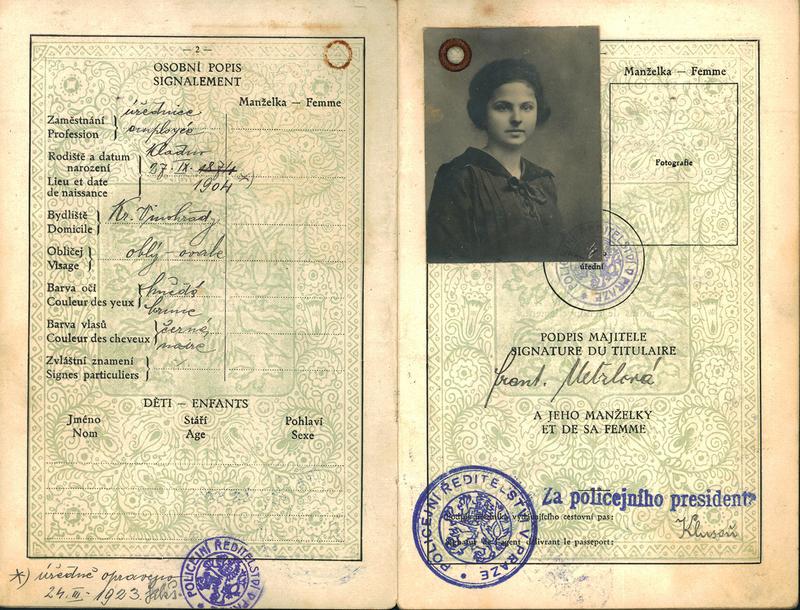 — 2 —
OSOBNÍ POPIS
SIGNALEMENT
Manželka — Femme
Zaměstnání
Profession
úřednice
employée
Rodiště a datum
narození
Lieu et date
de naissance
Kladno
27. IX. 1874
1904 *)
Bydliště
Domicile
Kr. Vinohrady
Obličej
Visage
oblý ovale
Barva očí
Couleur des yeux
hnědé
brune
Barva vlasů
Couleur des cheveux
černé
noire
Zvláštní znamení
Signes particuliers
DĚTI — ENFANTS
Jméno Stáří Pohlaví
Nom Age Sexe
*) úředně opraveno
24. III. 1923
POLICEJNÍ ŘEDITELSTVÍ
Manželka — Femme
Fotografie
úřední
POLICEJNÍ ŘEDITELSTVÍ V PRAZE
PODPIS MAJITELE
SIGNATURE DU TITULAIRE
Frant. Metzlová
A JEHO MANŽELKY
ET DE SA FEMME
POLICEJNÍ ŘEDITELSTVÍ V PRAZE
Za policejního president
vydávajícího cestovní pas:
agent délivrant le passeport: